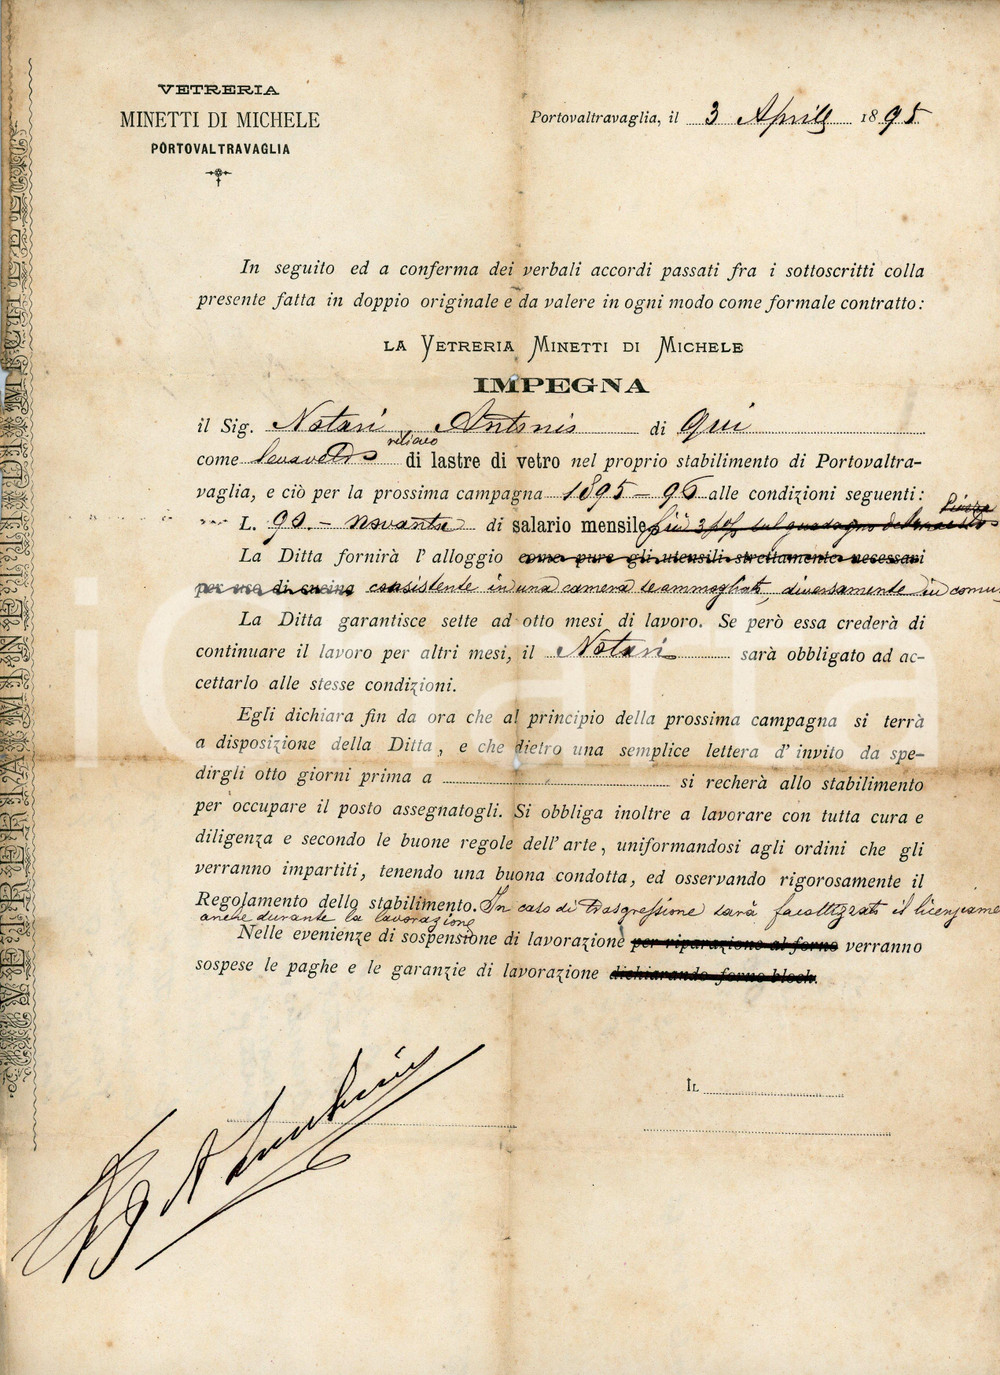 VETRERIA
MINETTI DI MICHELE
PORTOVALTRAVAGLIA
Portovaltravaglia, il 3 Aprile 1895
In seguito ed a conferma dei verbali accordi passati fra i sottoscritti colla
presente fatta in doppio originale e da valere in ogni modo come formale contratto:
LA VETRERIA MINETTI DI MICHELE
IMPEGNA
il Sig. Notari Antonio di qui
come di lastre di vetro nel proprio stabilimento di Portovaltra-
vaglia, e ciò per la prossima campagna 1895-96 alle condizioni seguenti:
L. 90.- novanta di salario mensile più 3 p% sul guadagno della piazza
La Ditta fornirà l'alloggio come pure gli utensili strettamente necessari
per uso di cucina consistente in una camera se ammogliato, diversamente in comu
La Ditta garantisce sette ad otto mesi di lavoro. Se però essa crederà di
continuare il lavoro per altri mesi, il Notari sarà obbligato ad ac-
cettarlo alle stesse condizioni.
Egli dichiara fin da ora che al principio della prossima campagna si terrà
a disposizione della Ditta, e che dietro una semplice lettera d'invito da spe-
dirgli otto giorni prima a si recherà allo stabilimento
per occupare il posto assegnatogli. Si obbliga inoltre a lavorare con tutta cura e
diligenza e secondo le buone regole dell'arte, uniformandosi agli ordini che gli
verranno impartiti, tenendo una buona condotta, ed osservando rigorosamente il
Regolamento dello stabilimento. In caso di trasgressione sarà facoltizzato il licenziame
anche durante la lavorazione
Nelle evenienze di sospensione di lavorazione per riparazione al forno verranno
sospese le paghe e le garanzie di lavorazione dichiarando forno bloch.
IL
VETRERIA MINETTI DI MICHELE